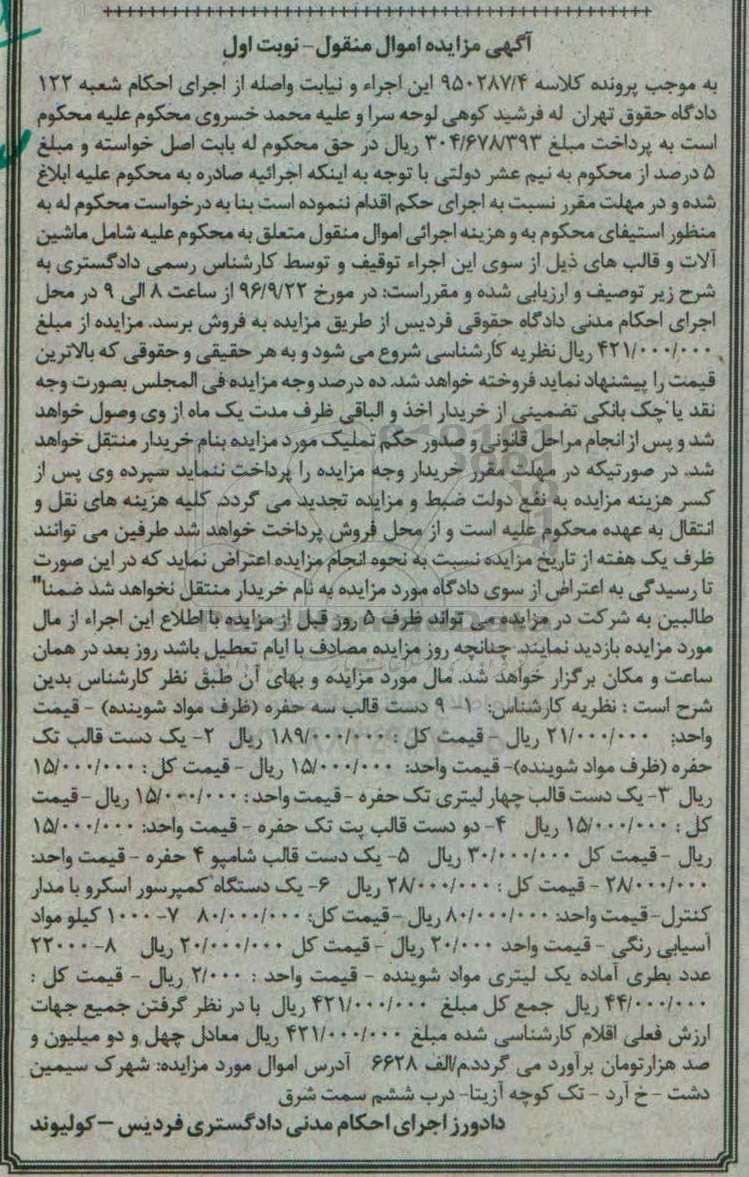 آگهی مزایده اموال منقول - نوبت اول
به موجب پرونده کلاسه ۹۵۰۲۸۷/۴ این اجراء و نیابت واصله از اجرای احکام شعبه ۱۲۲
دادگاه حقوق تهران له فرشید کوهی لوحه سرا و علیه محمد خسروی محکوم علیه محکوم
است به پرداخت مبلغ ۳۰۴/۶۷۸/۳۹۳ ریال در حق محکوم له بابت اصل خواسته و مبلغ
۵ درصد از محکوم به نیم عشر دولتی با توجه به اینکه اجرائیه صادره به محکوم علیه ابلاغ
شده و در مهلت مقرر نسبت به اجرای حکم اقدام ننموده است بنا به درخواست محکوم له به
منظور استیفای محکوم به و هزینه اجرائی اموال منقول متعلق به محکوم علیه شامل ماشین
آلات و قالب های ذیل از سوی این اجراء توقیف و توسط کارشناس رسمی دادگستری به
شرح زیر توصیف و ارزیابی شده و مقرراست: در مورخ ۹۶/۹/۲۲ از ساعت ۸ الی ۹ در محل
اجرای احکام مدنی دادگاه حقوقی فردیس از طریق مزایده به فروش برسد. مزایده از مبلغ
۴۲۱/۰۰۰/۰۰۰ ریال نظریه کارشناسی شروع می شود و به هر حقیقی و حقوقی که بالاترین
قیمت را پیشنهاد نماید فروخته خواهد شد. ده درصد وجه مزایده فی المجلس بصورت وجه
نقد یا چک بانکی تضمینی از خریدار اخذ و الباقی ظرف مدت یک ماه از وی وصول خواهد
شد و پس از انجام مراحل قانونی و صدور حکم تملیک مورد مزایده بنام خریدار منتقل خواهد
شد. در صورتیکه در مهلت مقرر خریدار وجه مزایده را پرداخت ننماید سپرده وی پس از
کسر هزینه مزایده به نفع دولت ضبط و مزایده تجدید می گردد. کلیه هزینه های نقل و
انتقال به عهده محکوم علیه است و از محل فروش پرداخت خواهد شد طرفین می توانند
ظرف یک هفته از تاریخ مزایده نسبت به نحوه انجام مزایده اعتراض نماید که در این صورت
تا رسیدگی به اعتراض از سوی دادگاه مورد مزایده به نام خریدار منتقل نخواهد شد ضمنا"
طالبین به شرکت در مزایده می تواند ظرف ۵ روز قبل از مزایده با اطلاع این اجراء از مال
مورد مزایده بازدید نمایند. چنانچه روز مزایده مصادف با ایام تعطیل باشد روز بعد در همان
ساعت و مکان برگزار خواهد شد. مال مورد مزایده و بهای آن طبق نظر کارشناس بدین
شرح است : نظریه کارشناس: ۱- ۹ دست قالب سه حفره (ظرف مواد شوینده) - قیمت
واحد: ۲۱/۰۰۰/۰۰۰ ریال - قیمت کل : ۱۸۹/۰۰۰/۰۰۰ ریال ۲- یک دست قالب تک
حفره (ظرف مواد شوینده)- قیمت واحد: ۱۵/۰۰۰/۰۰۰ ریال - قیمت کل : ۱۵/۰۰۰/۰۰۰
ریال ۳- یک دست قالب چهار لیتری تک حفره - قیمت واحد : ۱۵/۰۰۰/۰۰۰ ریال - قیمت
کل : ۱۵/۰۰۰/۰۰۰ ریال ۴- دو دست قالب پت تک حفره - قیمت واحد: ۱۵/۰۰۰/۰۰۰
ریال - قیمت کل ۳۰/۰۰۰/۰۰۰ ریال ۵- یک دست قالب شامپو ۴ حفره - قیمت واحد:
۲۸/۰۰۰/۰۰۰ - قیمت کل : ۲۸/۰۰۰/۰۰۰ ریال ۶- یک دستگاه کمپرسور اسکرو با مدار
کنترل- قیمت واحد: ۸۰/۰۰۰/۰۰۰ ریال - قیمت کل: ۸۰/۰۰۰/۰۰۰ ۷- ۱۰۰۰ کیلو مواد
آسیابی رنگی - قیمت واحد ۲۰/۰۰۰ ریال - قیمت کل ۲۰/۰۰۰/۰۰۰ ریال ۸- ۲۲۰۰۰
عدد بطری آماده یک لیتری مواد شوینده - قیمت واحد : ۲/۰۰۰ ریال - قیمت کل :
۴۴/۰۰۰/۰۰۰ ریال جمع کل مبلغ ۴۲۱/۰۰۰/۰۰۰ ریال با در نظر گرفتن جمیع جهات
ارزش فعلی اقلام کارشناسی شده مبلغ ۴۲۱/۰۰۰/۰۰۰ ریال معادل چهل و دو میلیون و
صد هزارتومان برآورد می گردد.م/الف ۶۶۲۸ آدرس اموال مورد مزایده: شهرک سیمین
دشت - خ آرد - تک کوچه آزیتا- درب ششم سمت شرق
دادورز اجرای احکام مدنی دادگستری فردیس - کولیوند